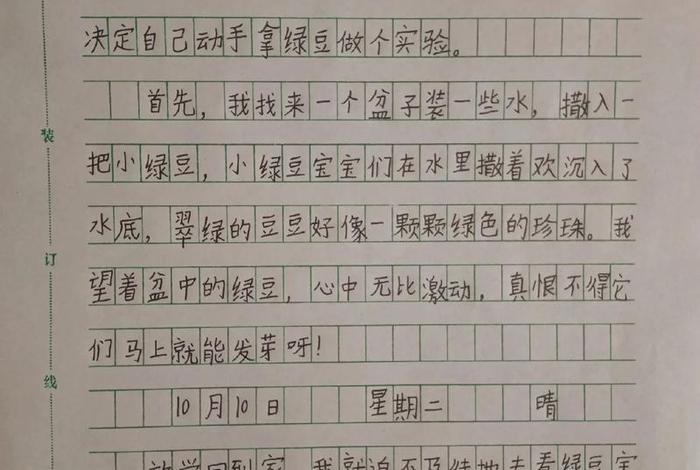 决定自己动手拿绿豆做个实验。
首先，我找来一个盆子装一些水，撒入一
把小绿豆，小绿豆宝宝们在水里撒着欢沉入了
水底，翠绿的豆豆好像一颗颗绿色的珍珠。我
望着盆中的绿豆，心中无比激动，真恨不得它
们马上就能发芽呀！
10月10日 星期二 晴
放学回到家，我就迫不及待地去看绿豆宝
装
订
线